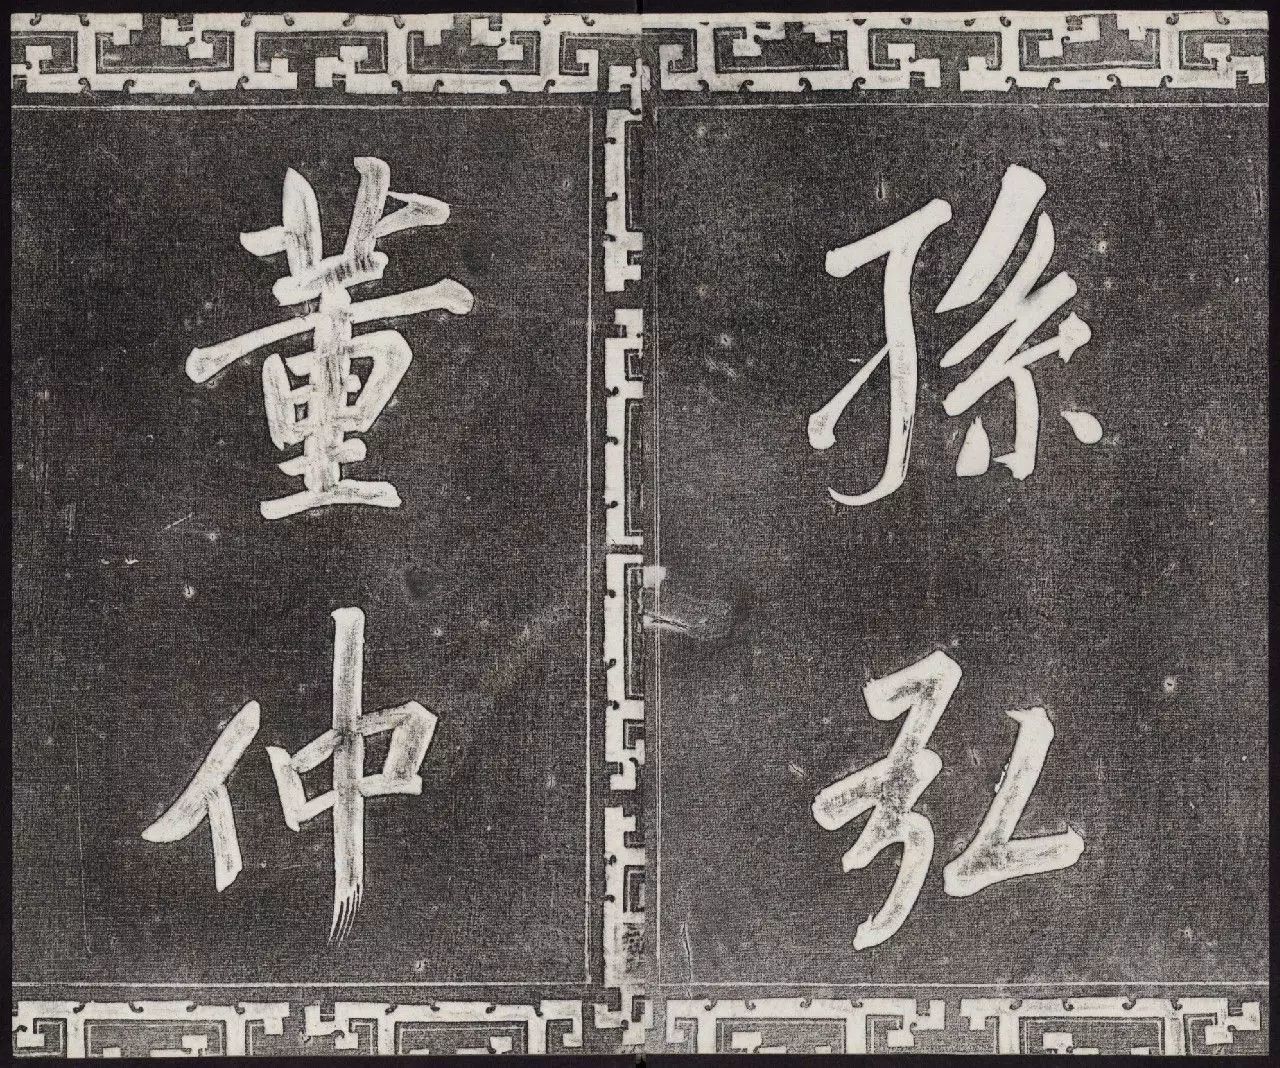 孫弘
董仲